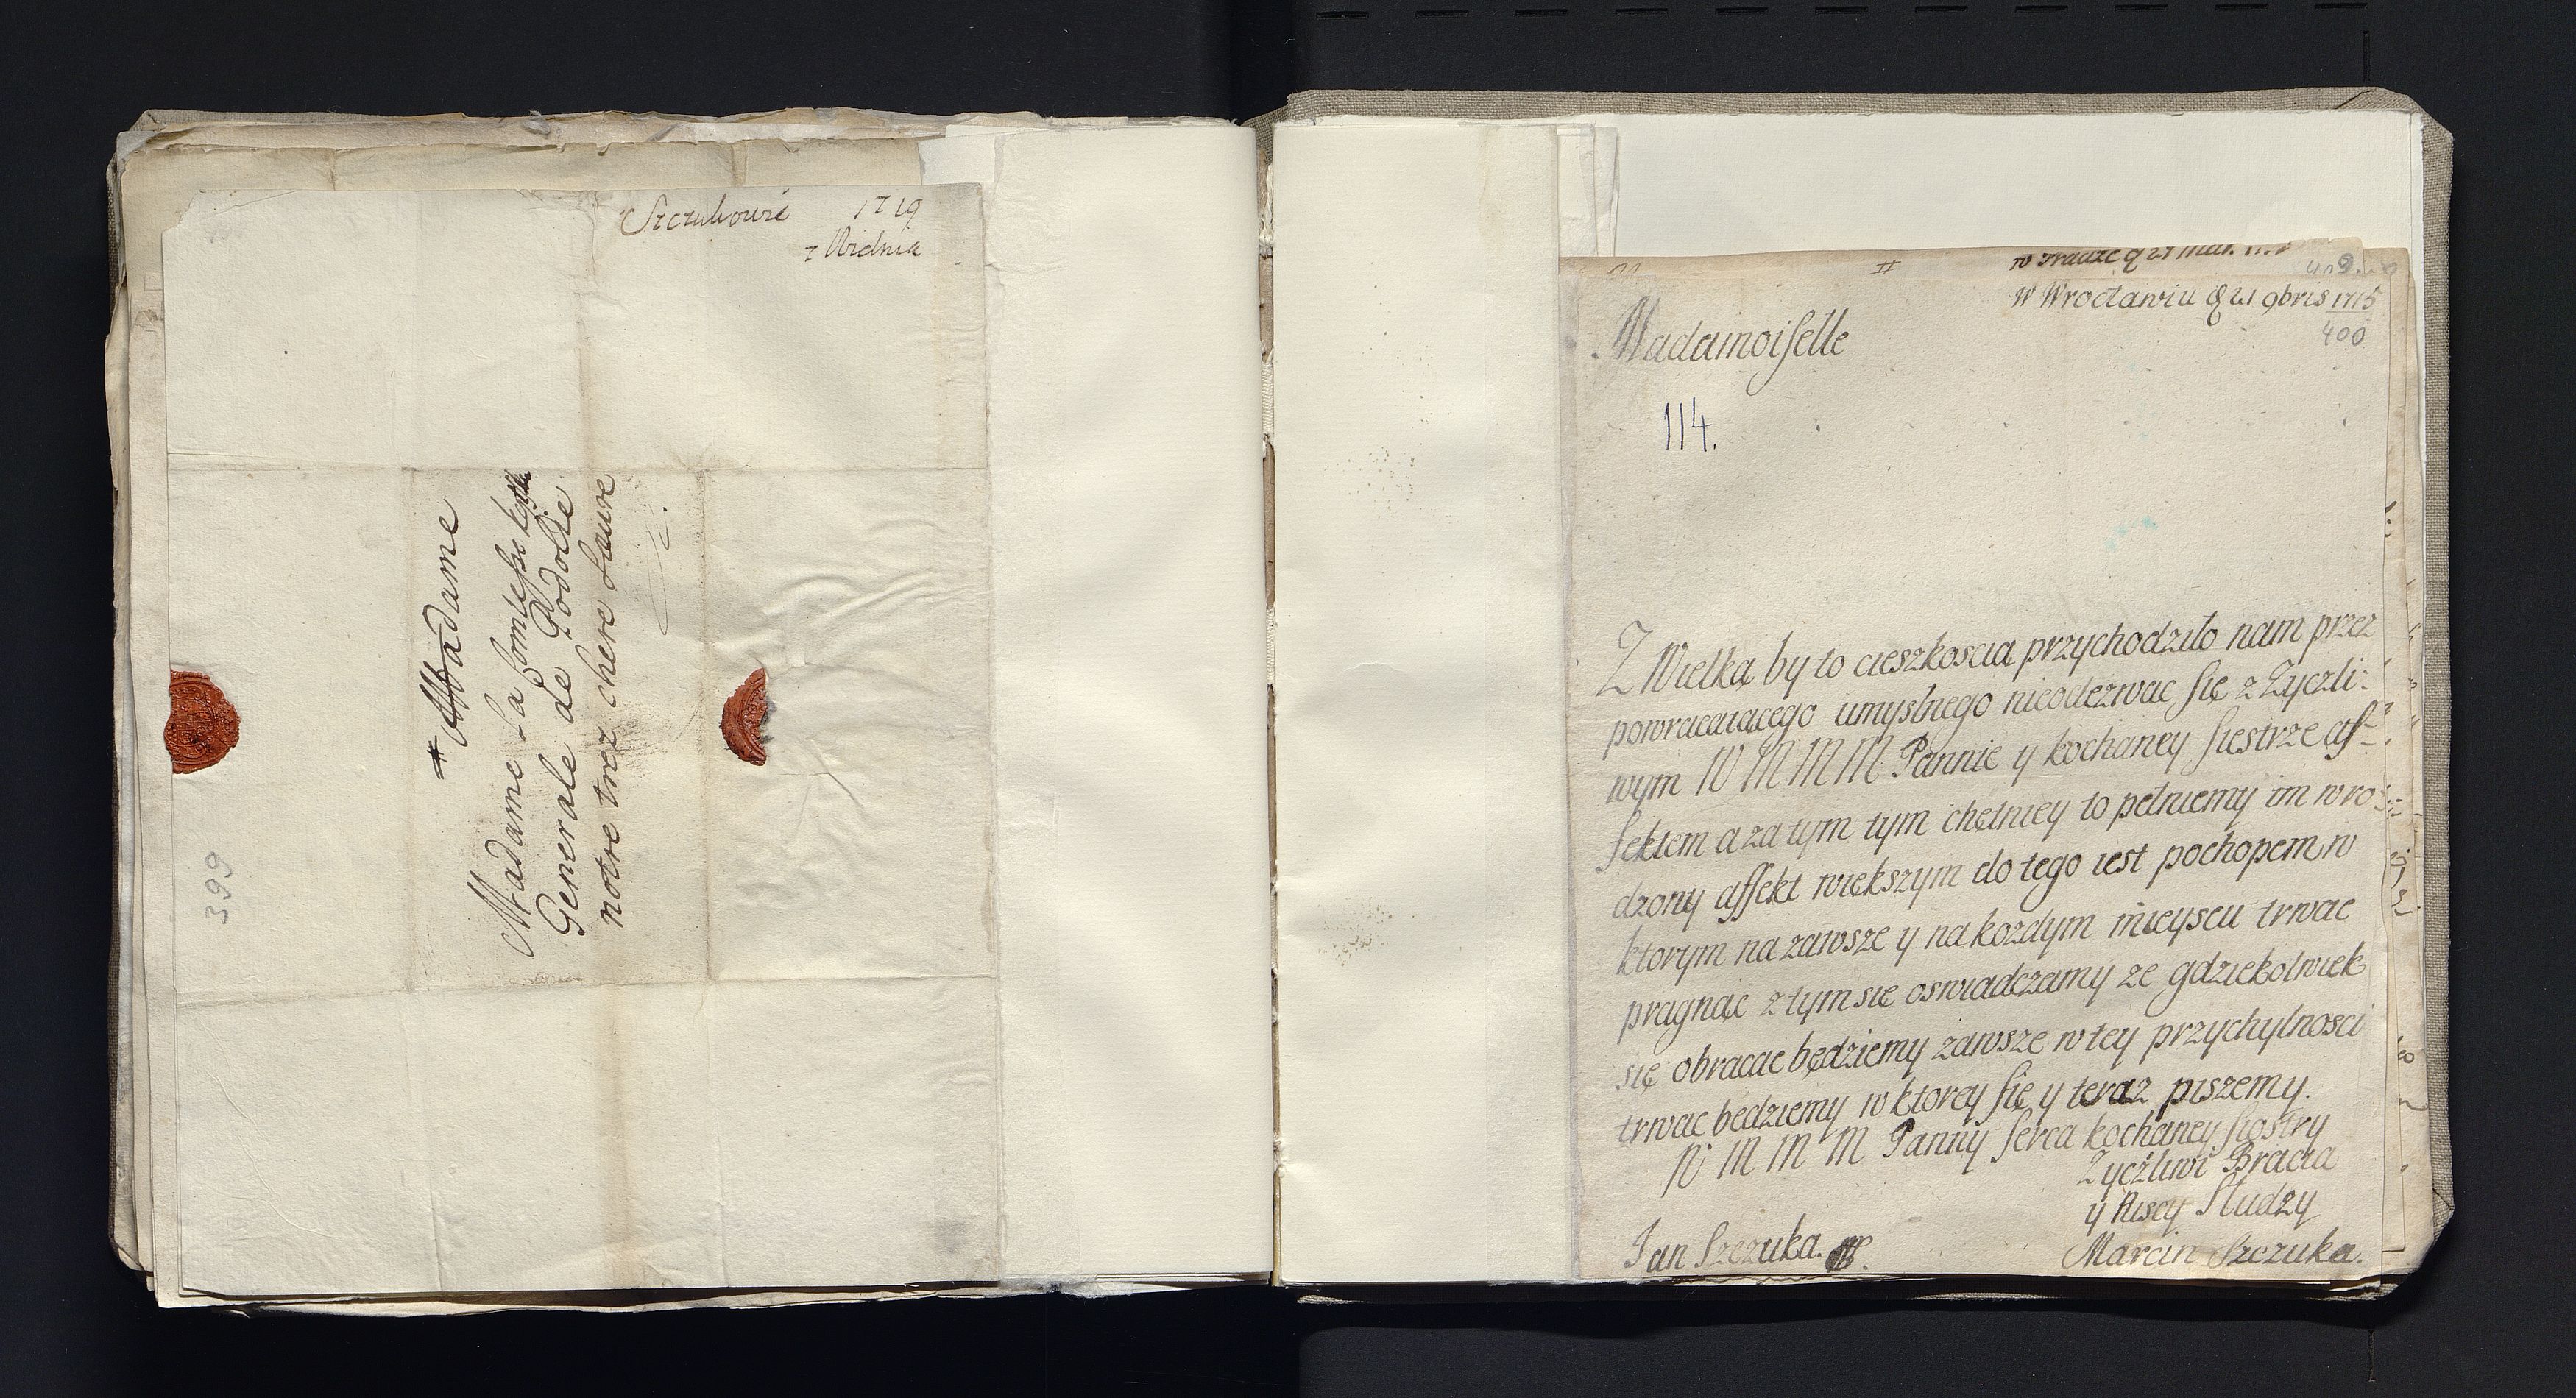 Szczukowie 1719
z Wiednia
# Madame
Madame La Comtesse
Generale de Podolie
notre trez chere Sœure
399
#
W Wrocławiu d 21 9bris 1715
400
Madamoiselle
114.
Z Wielką by to cieszkoscią przychodziło nam przez
powracaiącego umyslnego nieodezwac się z Zyczli:
wym W M M M Pannie y kochaney siestrze af-
fektem a za tym tym chętniey to pełniemy im wro
dzony affekt większym do tego iest pochopem w
ktorym na zawsze y na kozdym mieyscu trwac
pragnąc z tym się oswiadczamy ze gdziekolwiek
się obracac będziemy zawsze w tey przychylnosci
trwac będziemy w ktorey się y teraz piszemy.
W M M M Panny serca kochaney siostry
Zyczliwi Bracia
y Niscy Słudzy
Jan Szczuka.
Marcin Szczuka.